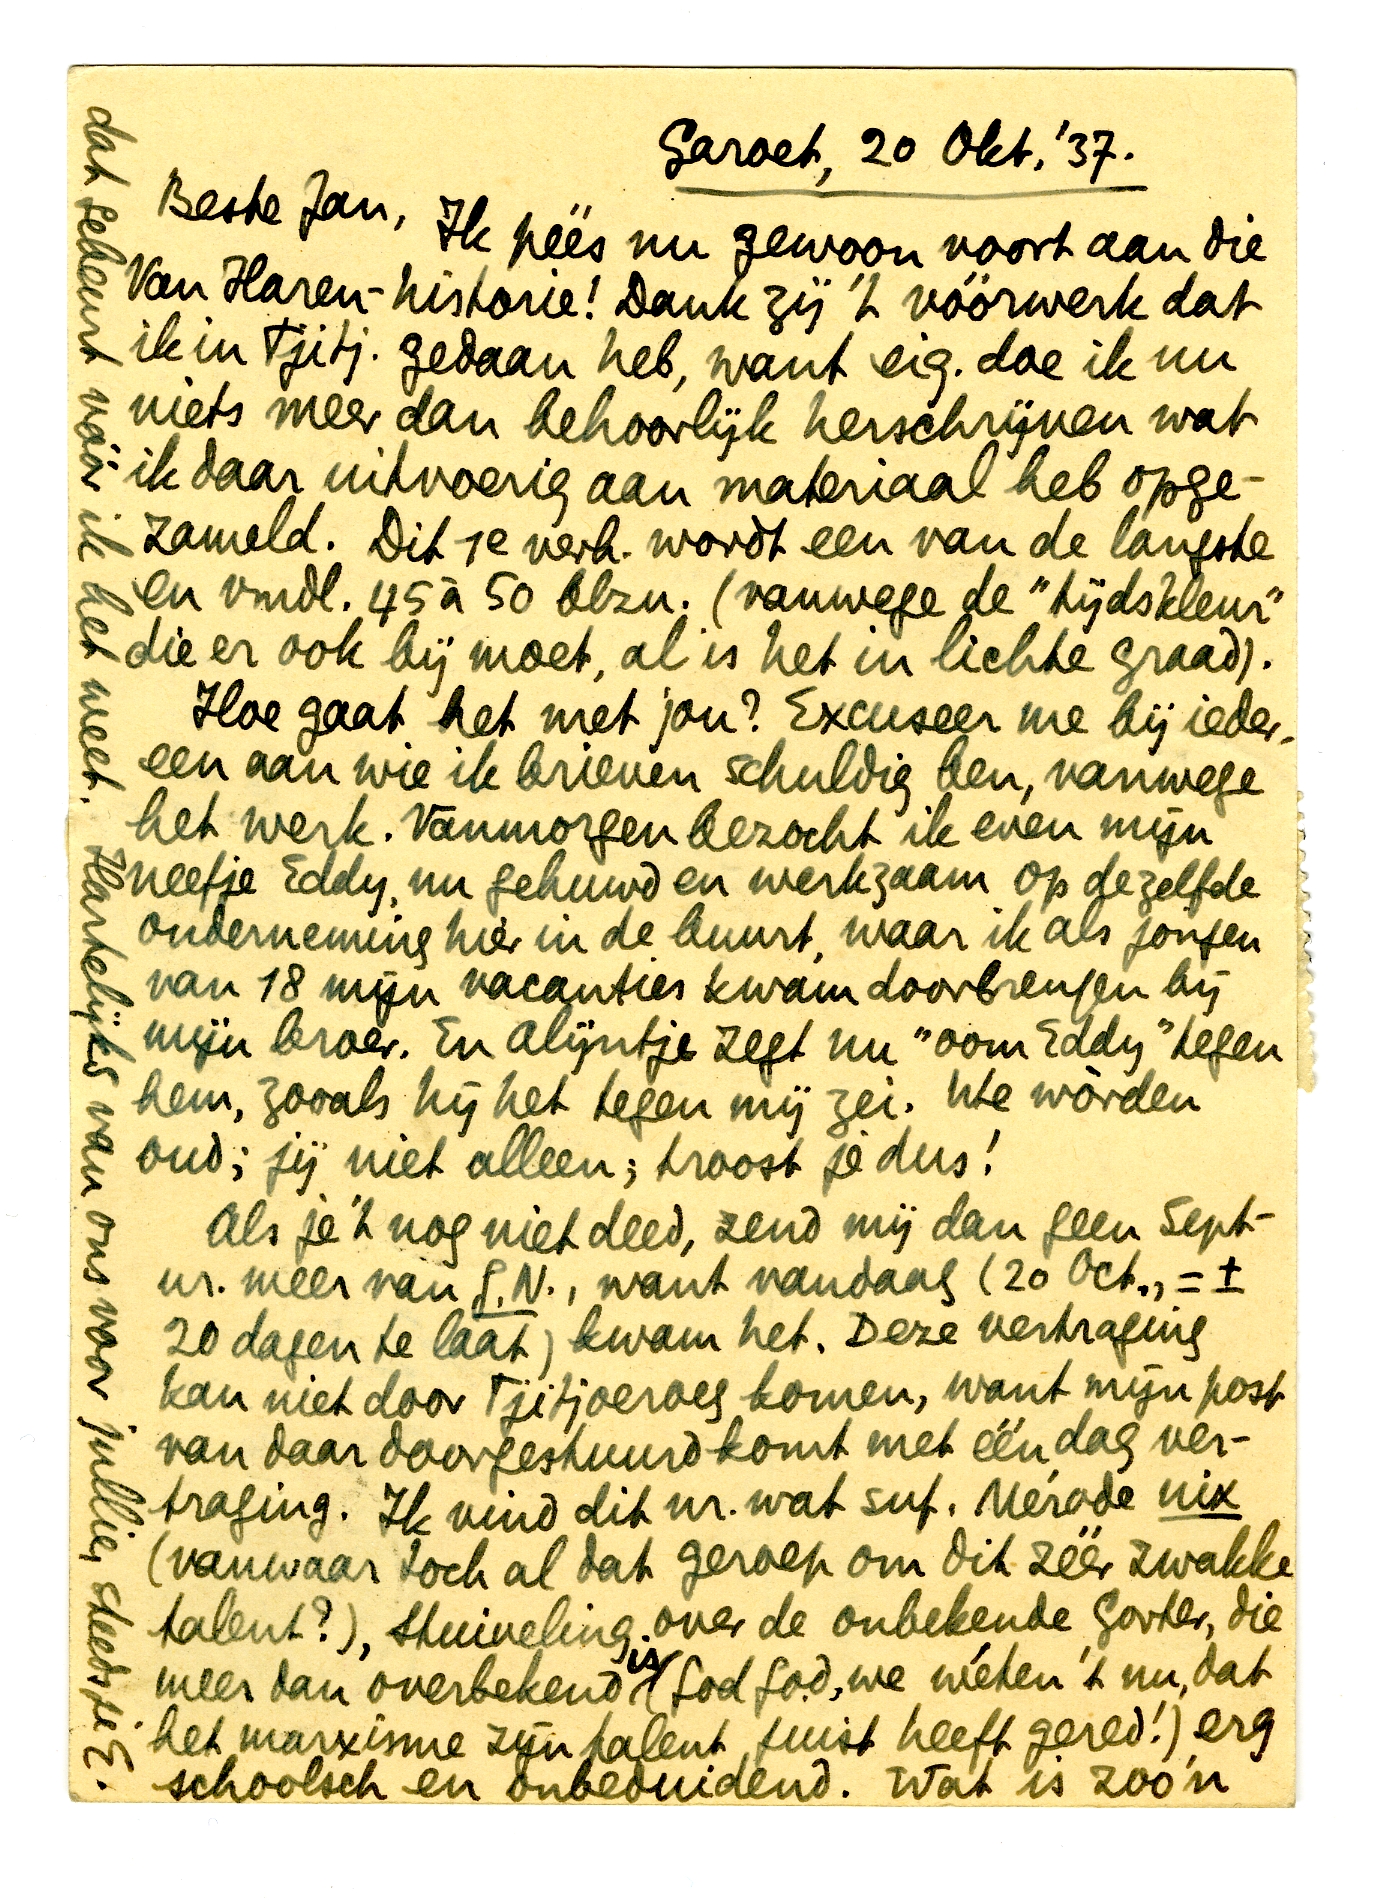 Garoet, 20 Okt. '37.
Beste Jan, Ik péés nu gewoon voort aan die
Van Haren-historie! Dank zij 't vóórwerk dat
ik in Tjitj. gedaan heb, want eig. doe ik nu
niets meer dan behoorlijk herschrijven wat
ik daar uitvoerig aan materiaal heb opge-
zameld. Dit 1e verh. wordt een van de langste
en vmdl. 45 à 50 blzn. (vanwege de "tijdskleur"
die er ook bij moet, al is het in lichte graad).
Hoe gaat het met jou? Excuseer me bij ieder-
een aan wie ik brieven schuldig ben, vanwege
het werk. Vanmorgen bezocht ik even mijn
neefje Eddy, nu gehuwd en werkzaam op dezelfde
onderneming hier in de buurt, waar ik als jongen
van 18 mijn vacanties kwam doorbrengen bij
mijn broer. En Alijntje zegt nu "oom Eddy" tegen
hem, zooals hij het tegen mij zei. We wòrden
oud; jij niet alleen; troost je dus!
Als je 't nog niet deed, zend mij dan geen Sept-
nr. meer van G.N., want vandaag (20 Oct., = ±
20 dagen te laat) kwam het. Deze vertraging
kan niet door Tjitjoeroeg komen, want mijn post
van daar doorgestuurd komt met één dag ver-
traging. Ik vind dit nr. wat suf. Mérode nix
(vanwaar toch al dat geroep om dit zéér zwakke
talent?), Stuiveling over de onbekende Gorter, die
meer dan overbekend is (God God, we wéten 't nu, dat
het marxisme zijn talent juist heeft gered!) erg
schoolsch en onbeduidend. Wat is zoo'n
dat scheurt vóór ik het weet. Hartelijks van ons voor jullie, steeds je E.